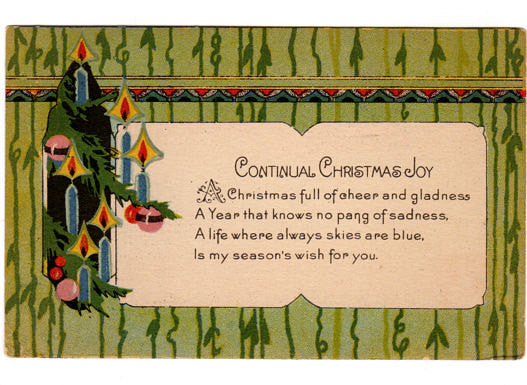 CONTINUAL CHRISTMAS JOY
A Christmas full of cheer and gladness
A Year that knows no pang of sadness,
A life where always skies are blue,
Is my season's wish for you.